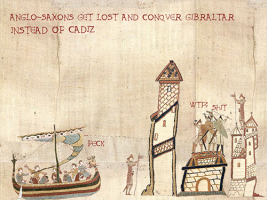 ANGLO-SAXONS GET LOST AND CONQUER GIBRALTAR
INSTEAD OF CADIZ
WTF?
SHIT
HECK